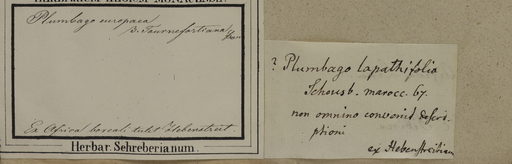 HERBARIUM REGIUM MONACENSE.
Plumbago europaea
β. Tournefortiana
Ex Africa boreal. Hebenstreit.
Herbar. Schreberianum.
? Plumbago lapathifolia
Schousb. marocc. 67.
non omnino convenit descri-
ptioni
ex Hebenstreitian